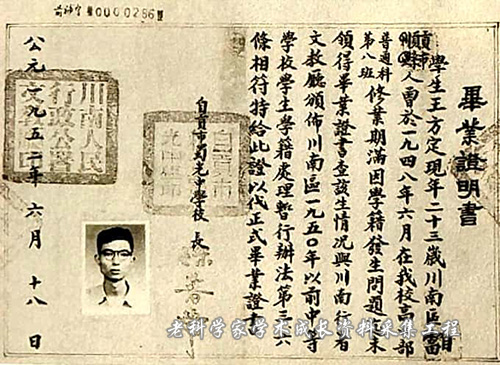 0000286
畢業證明書
學生王方定現年二十三歲川南區富
順縣
貢市
人曾於一九四八年六月在我校高中部
普通科
第八班
修業期滿因學籍發生問題迄未
領得畢業證書查該生情況與川南行署
文教廳頒佈川南區一九五〇年以前中等
學校學生學籍處理暫行辦法第三六
條相符特給此證以代正式畢業證書
自貢市蜀光中學校 長
公元一九五二年六月十八日
川南人民
行政公署
自貢市
老科学家学术成长资料采集工程